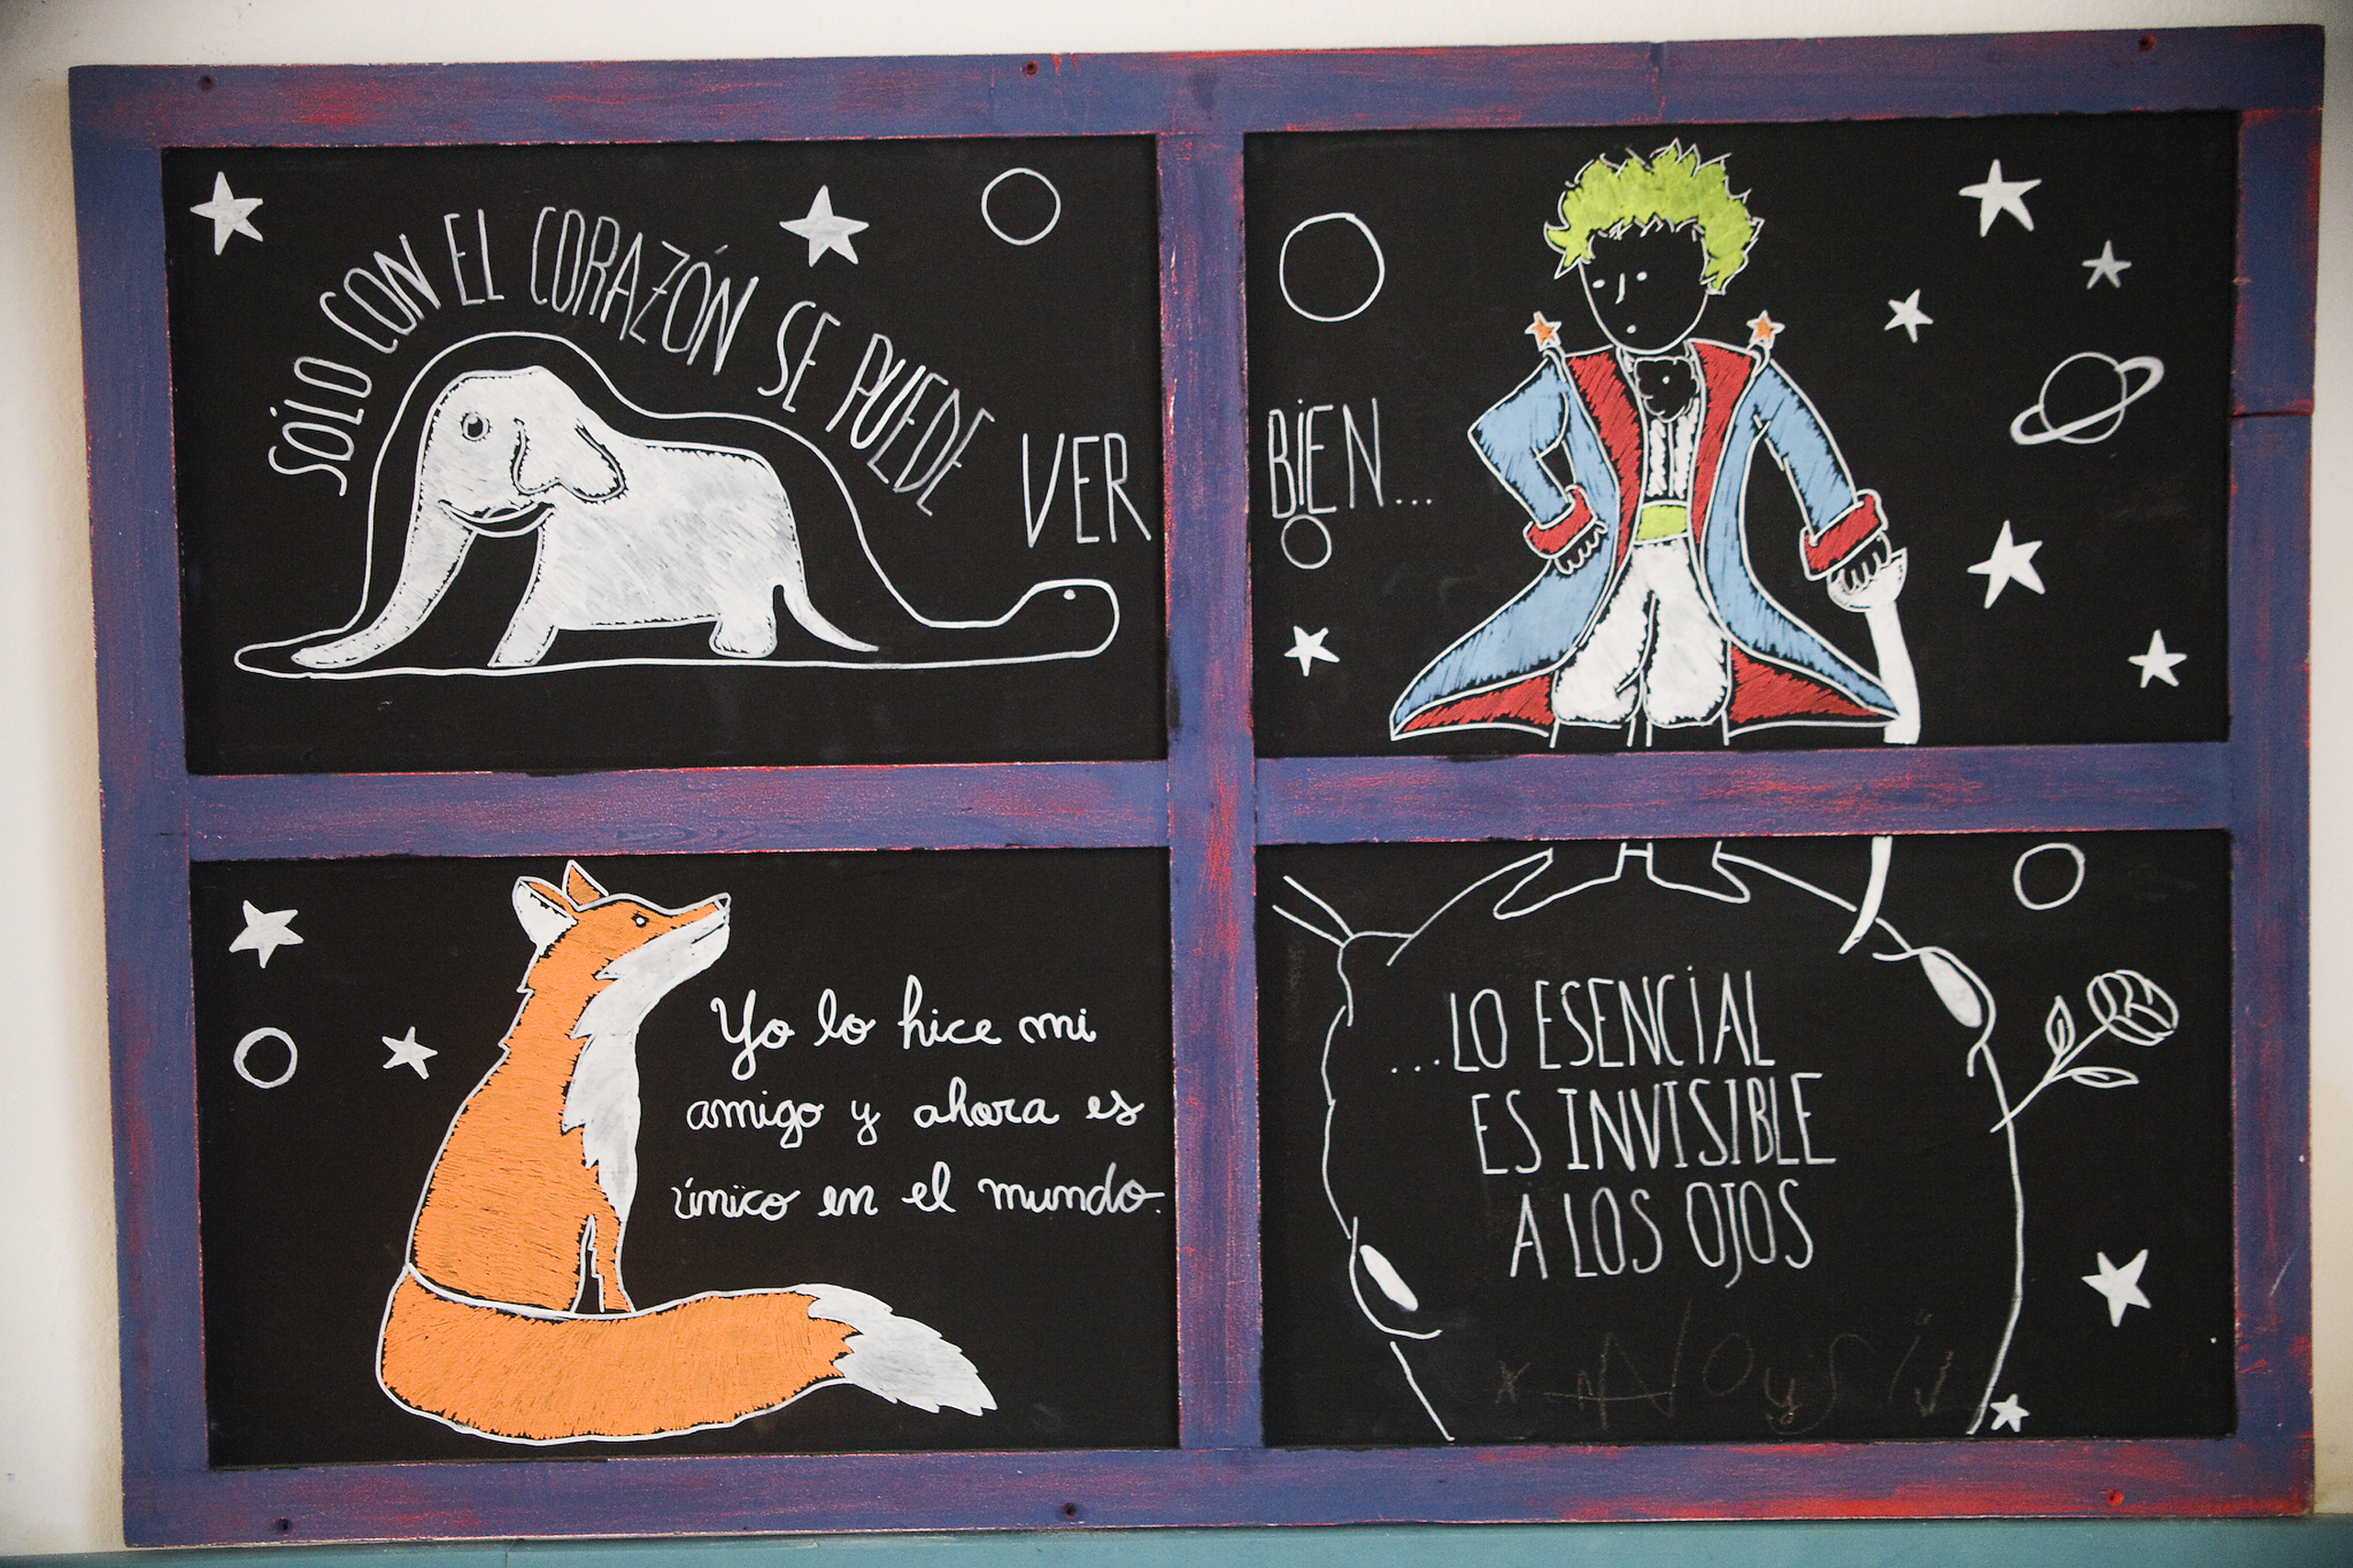 SÓLO CON EL CORAZÓN SE PUEDE VER
BIEN...
Yo lo hice mi
amigo y ahora es
único en el mundo.
...LO ESENCIAL
ES INVISIBLE
A LOS OJOS